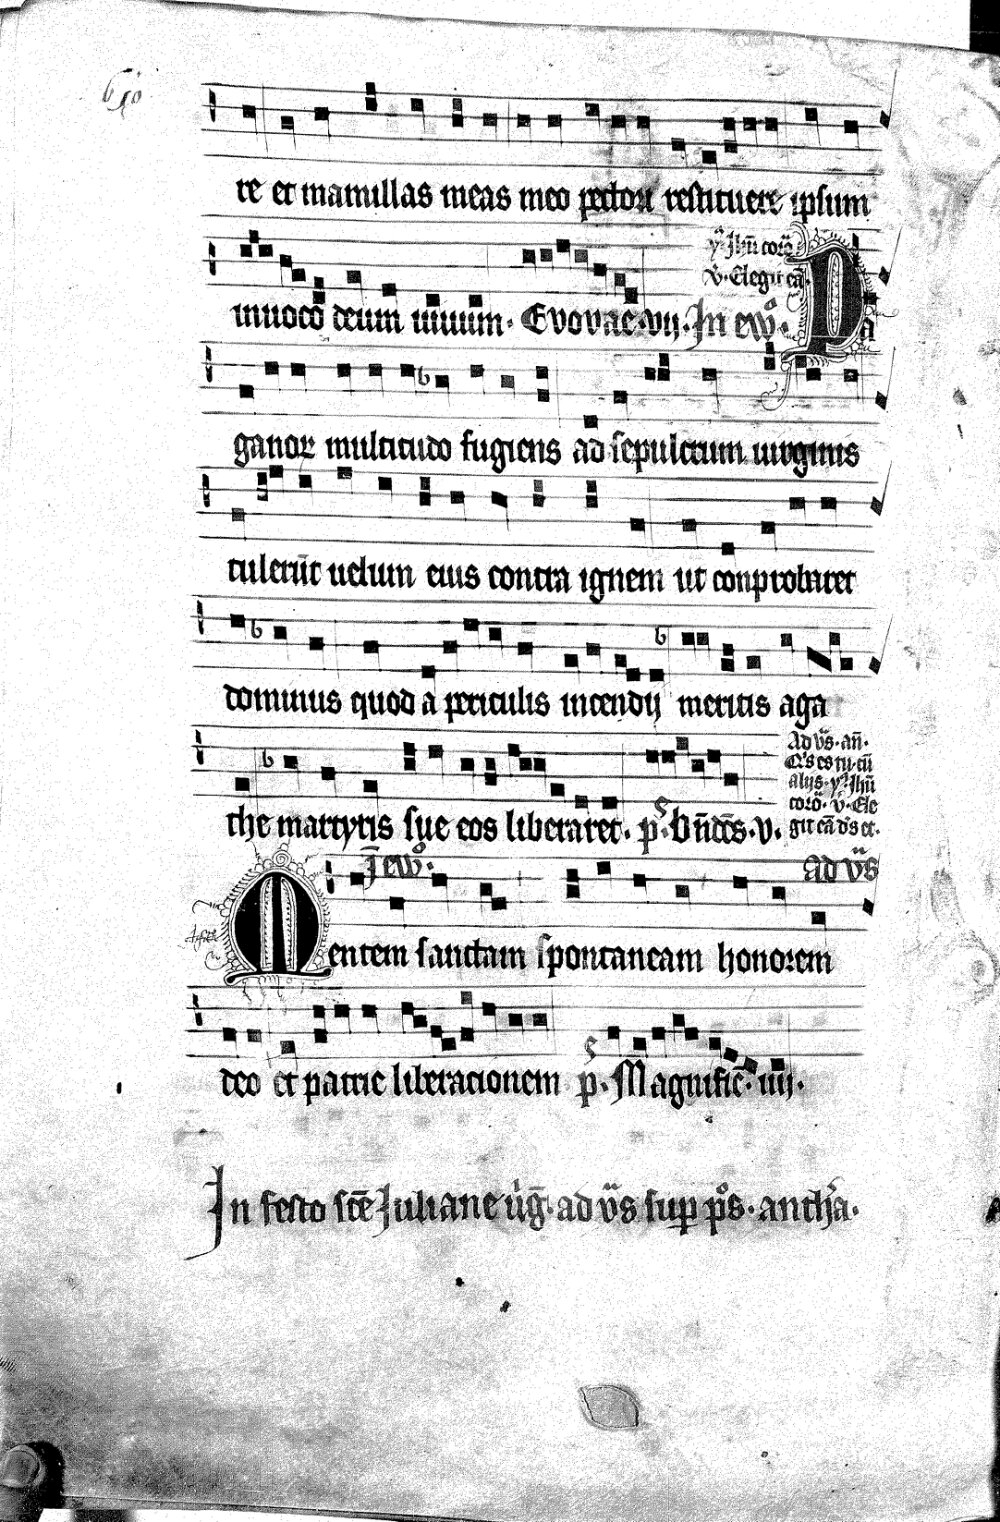 re et mamillas meas meo pectori restituere ipsum
ỹ. Jhũ corõ
inuoco deum uiuum. Evovae. vij. In ewº. Pa
v̄. Elegit eã.
ganoꝝ multitudo fugiens ad sepulcrum uirginis
tulerũt uelum eius contra ignem ut conprobaret
dominus quod a periculis incendij meritis aga
the martyris sue eos liberaret. pˢ. Bñdc̃s. v.
Ad v̄s. añ.
Q's es tu. cũ
alijs. ỹ. Jhũ
corõ. v̄. Ele
git eã dˢ et.
J̄ ewº.
Ad v̄s
Mentem sanctam spontaneam honorem
deo et patrie liberationem pˢ. Magnific̃. iiij.
In festo scẽ Juliane v̇ḡ. ad v̄s sup pºs. anthᵃ.